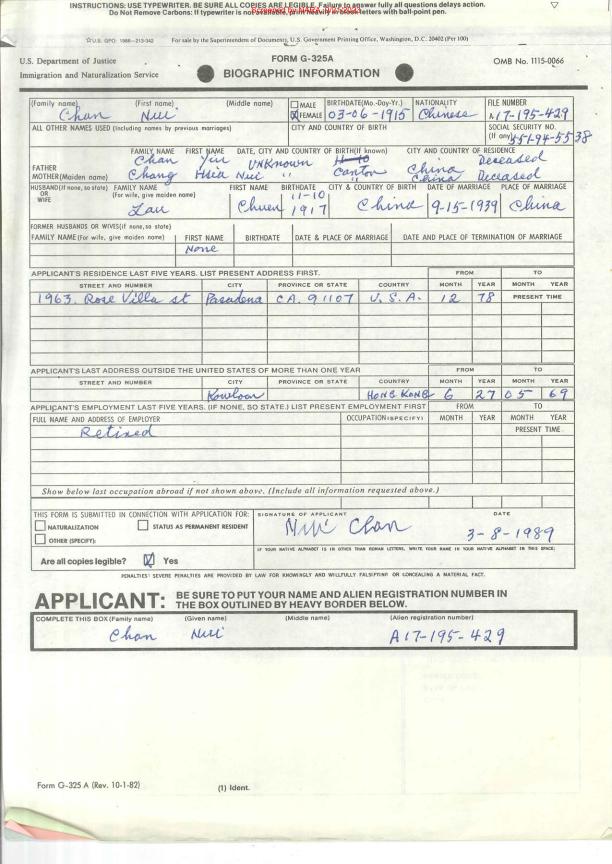 INSTRUCTIONS: USE TYPEWRITER. BE SURE ALL COPIES ARE LEGIBLE. Failure to answer fully all questions delays action.
Do Not Remove Carbons: If typewriter is not available, print heavily in block letters with ball-point pen.
☆U.S. GPO: 1986-213-342 For sale by the Superintendent of Documents, U.S. Government Printing Office, Washington, D.C. 20402 (Per 100)
U.S. Department of Justice FORM G-325A OMB No. 1115-0066
Immigration and Naturalization Service BIOGRAPHIC INFORMATION
(Family name) (First name) (Middle name) MALE BIRTHDATE(Mo.-Day-Yr.) NATIONALITY FILE NUMBER
Chan Nui FEMALE 03-06-1915 Chinese A17-195-429
ALL OTHER NAMES USED (Including names by previous marriages) CITY AND COUNTRY OF BIRTH SOCIAL SECURITY NO.
(If any) 551-94-5538
FAMILY NAME FIRST NAME DATE, CITY AND COUNTRY OF BIRTH(If known) CITY AND COUNTRY OF RESIDENCE
FATHER Chan Yin UNKnown China Deceased
MOTHER(Maiden name) Chang Hsia Nui " Canton China Deceased
HUSBAND(If none, so state) FAMILY NAME FIRST NAME BIRTHDATE CITY & COUNTRY OF BIRTH DATE OF MARRIAGE PLACE OF MARRIAGE
OR (For wife, give maiden name)
WIFE Lau Chuen 11-10 1917 China 9-15-1939 China
FORMER HUSBANDS OR WIVES(if none, so state)
FAMILY NAME (For wife, give maiden name) FIRST NAME BIRTHDATE DATE & PLACE OF MARRIAGE DATE AND PLACE OF TERMINATION OF MARRIAGE
None
APPLICANT'S RESIDENCE LAST FIVE YEARS. LIST PRESENT ADDRESS FIRST. FROM TO
STREET AND NUMBER CITY PROVINCE OR STATE COUNTRY MONTH YEAR MONTH YEAR
1963. Rose Villa st Pasadena CA. 91107 U.S.A. 12 78 PRESENT TIME
APPLICANT'S LAST ADDRESS OUTSIDE THE UNITED STATES OF MORE THAN ONE YEAR FROM TO
STREET AND NUMBER CITY PROVINCE OR STATE COUNTRY MONTH YEAR MONTH YEAR
Kowloon HONG KONG 6 27 05 69
APPLICANT'S EMPLOYMENT LAST FIVE YEARS. (IF NONE, SO STATE.) LIST PRESENT EMPLOYMENT FIRST FROM TO
FULL NAME AND ADDRESS OF EMPLOYER OCCUPATION(SPECIFY) MONTH YEAR MONTH YEAR
Retired PRESENT TIME
Show below last occupation abroad if not shown above. (Include all information requested above.)
THIS FORM IS SUBMITTED IN CONNECTION WITH APPLICATION FOR: SIGNATURE OF APPLICANT DATE
NATURALIZATION STATUS AS PERMANENT RESIDENT Nui Chan 3-8-1989
OTHER (SPECIFY):
IF YOUR NATIVE ALPHABET IS IN OTHER THAN ROMAN LETTERS, WRITE YOUR NAME IN YOUR NATIVE ALPHABET IN THIS SPACE:
Are all copies legible? Yes
PENALTIES: SEVERE PENALTIES ARE PROVIDED BY LAW FOR KNOWINGLY AND WILLFULLY FALSIFYING OR CONCEALING A MATERIAL FACT.
APPLICANT: BE SURE TO PUT YOUR NAME AND ALIEN REGISTRATION NUMBER IN
THE BOX OUTLINED BY HEAVY BORDER BELOW.
COMPLETE THIS BOX (Family name) (Given name) (Middle name) (Alien registration number)
Chan Nui A17-195-429
Form G-325 A (Rev. 10-1-82) (1) Ident.